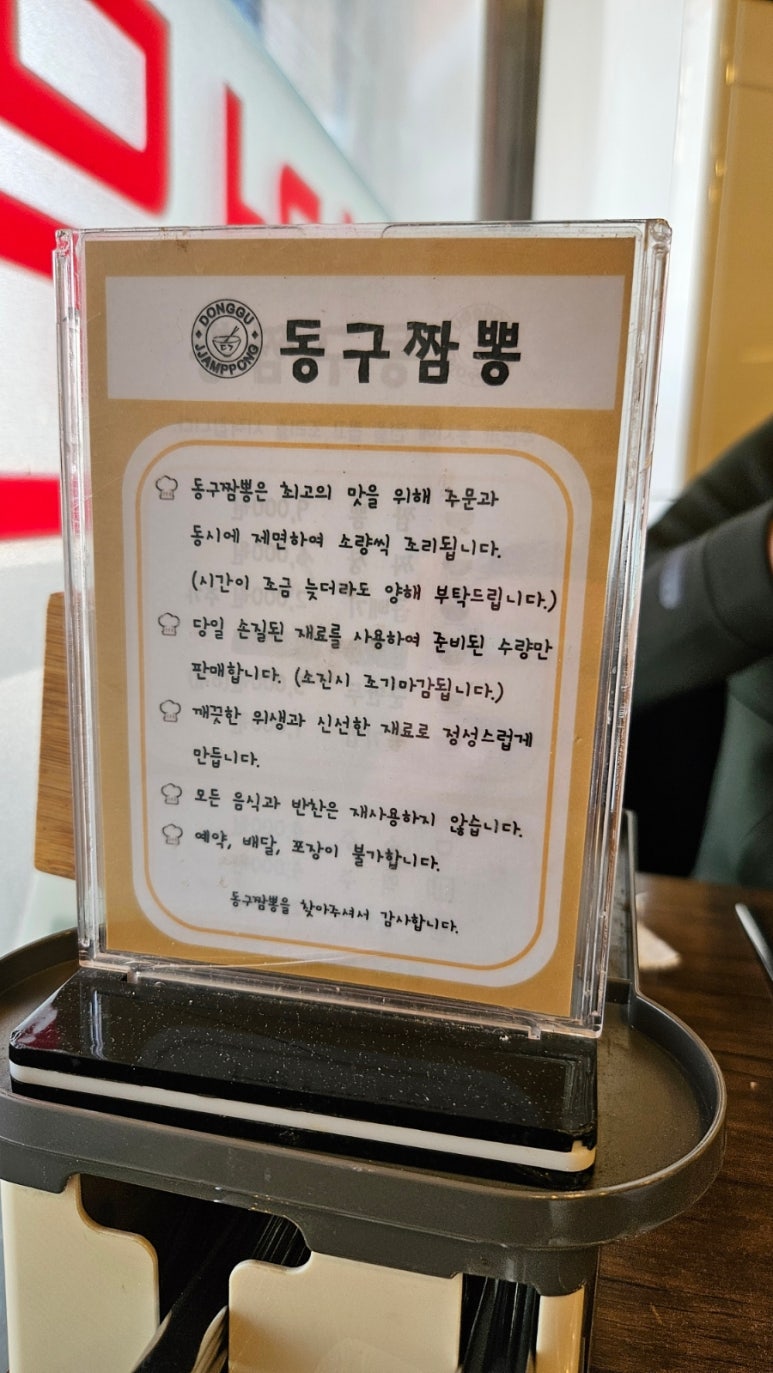 DONGGU
JJAMPPONG
동구짬뽕
동구짬뽕은 최고의 맛을 위해 주문과
동시에 제면하여 소량씩 조리됩니다.
(시간이 조금 늦더라도 양해 부탁드립니다.)
당일 손질된 재료를 사용하여 준비된 수량만
판매합니다. (소진시 조기마감됩니다.)
깨끗한 위생과 신선한 재료로 정성스럽게
만듭니다.
모든 음식과 반찬은 재사용하지 않습니다.
예약, 배달, 포장이 불가합니다.
동구짬뽕을 찾아주셔서 감사합니다.